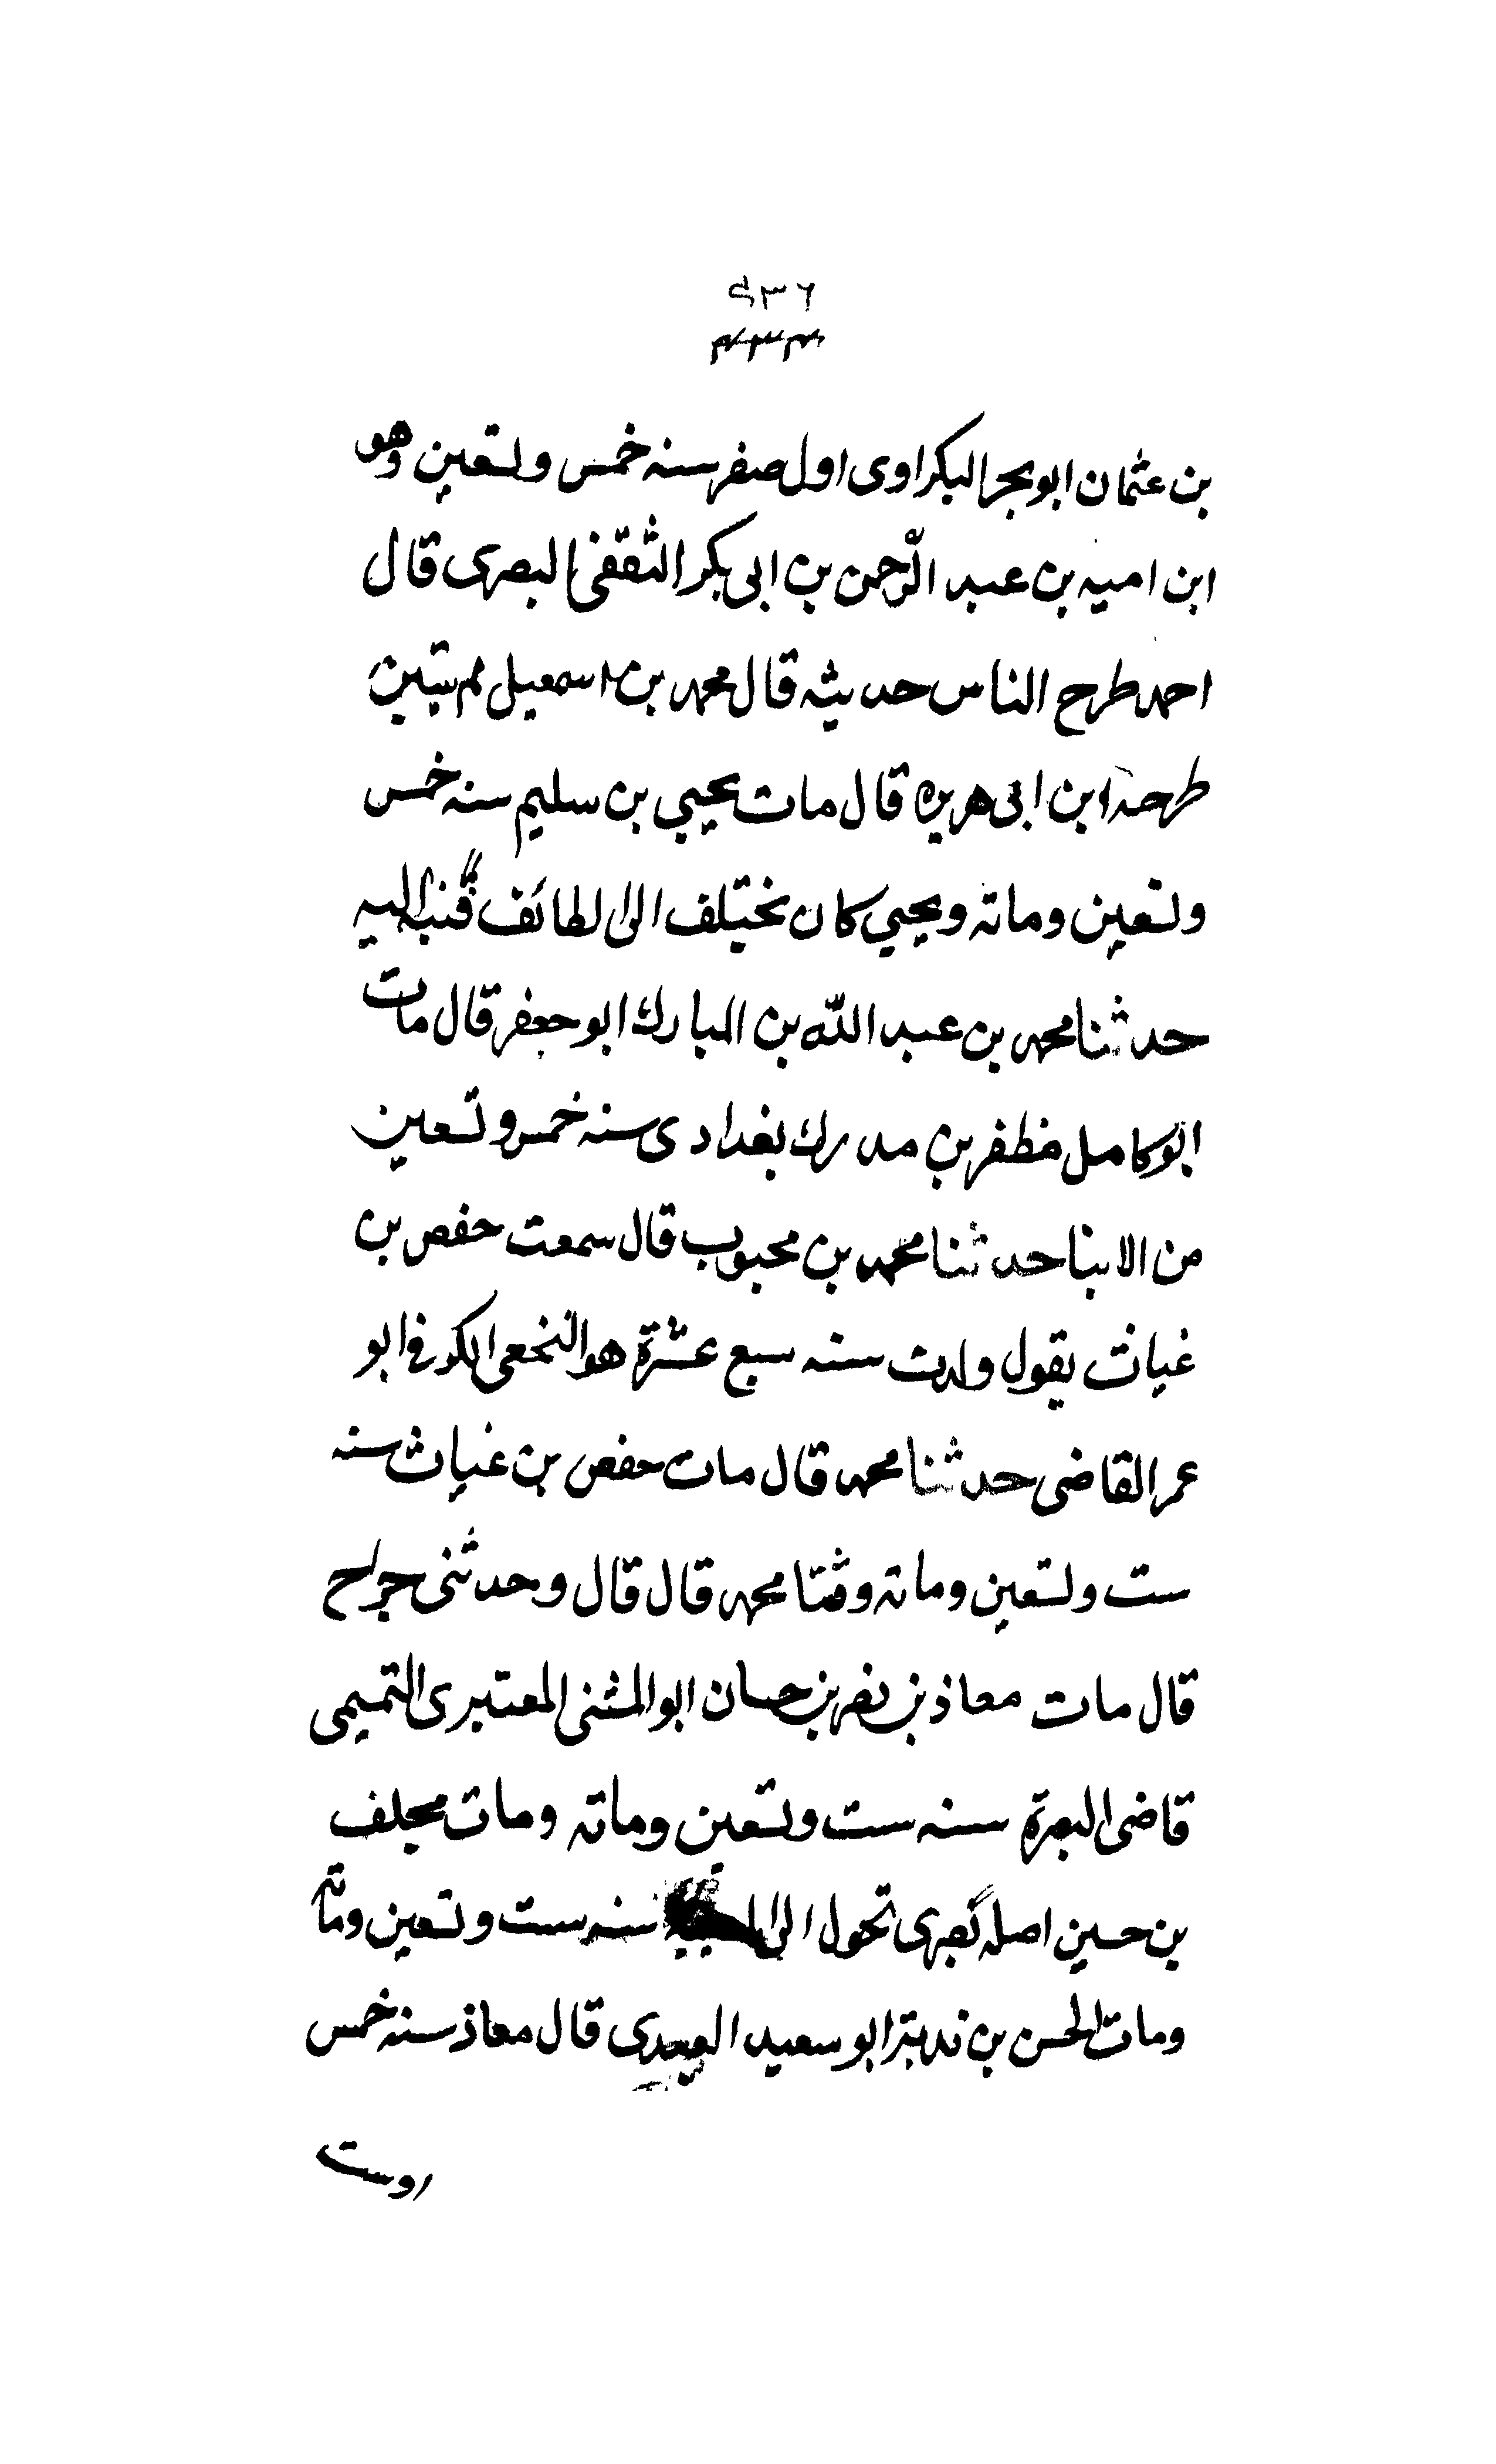 ٩٣٦
٤٣٣
بن عثمان ابو بحر البكراوى اول صفر سنه خمس وتسعين وهو
ابن اميه بن عبد الرّحمن بن ابى بكر الثقفى البصرى قال
احمد طرح الناس حديثه قال محمد بن اسمعيل لم يتبين
طرحه ابن ابى هريره قال مات يحيى بن سليم سنه خمس
وتسعين وماته ويحيي كان يختلف الى الطائف فنسب اليه
حدثنا محمد بن عبد اللّه بن المبارك ابو جعفر قال مات
ابو كامل مظفر بن مدرك بغدادى سنه خمس وتسعين
من الابنا حدثنا محمد بن محبوب قال سمعت حفص بن
غياث يقول ولدت سنه سبع عشرة هو النخعى الكوفى ابو
عمر القاضى حدثنا محمد قال مات حفص بن غياث سنه
ست وتسعين وماته وثنا محمد قال قال وحدثنى جراح
قال مات معاذ بن نصر بن حسان ابو المثنى المعتبرى التميمى
قاضى البصرة سنه ست وتسعين وماته ومات مجلف
بن حسين اصله بصرى تحول الى سنه ست وتسعين وماته
ومات الحسن بن ابو سعيد العبدى قال معاذ سنه خمس
اوست